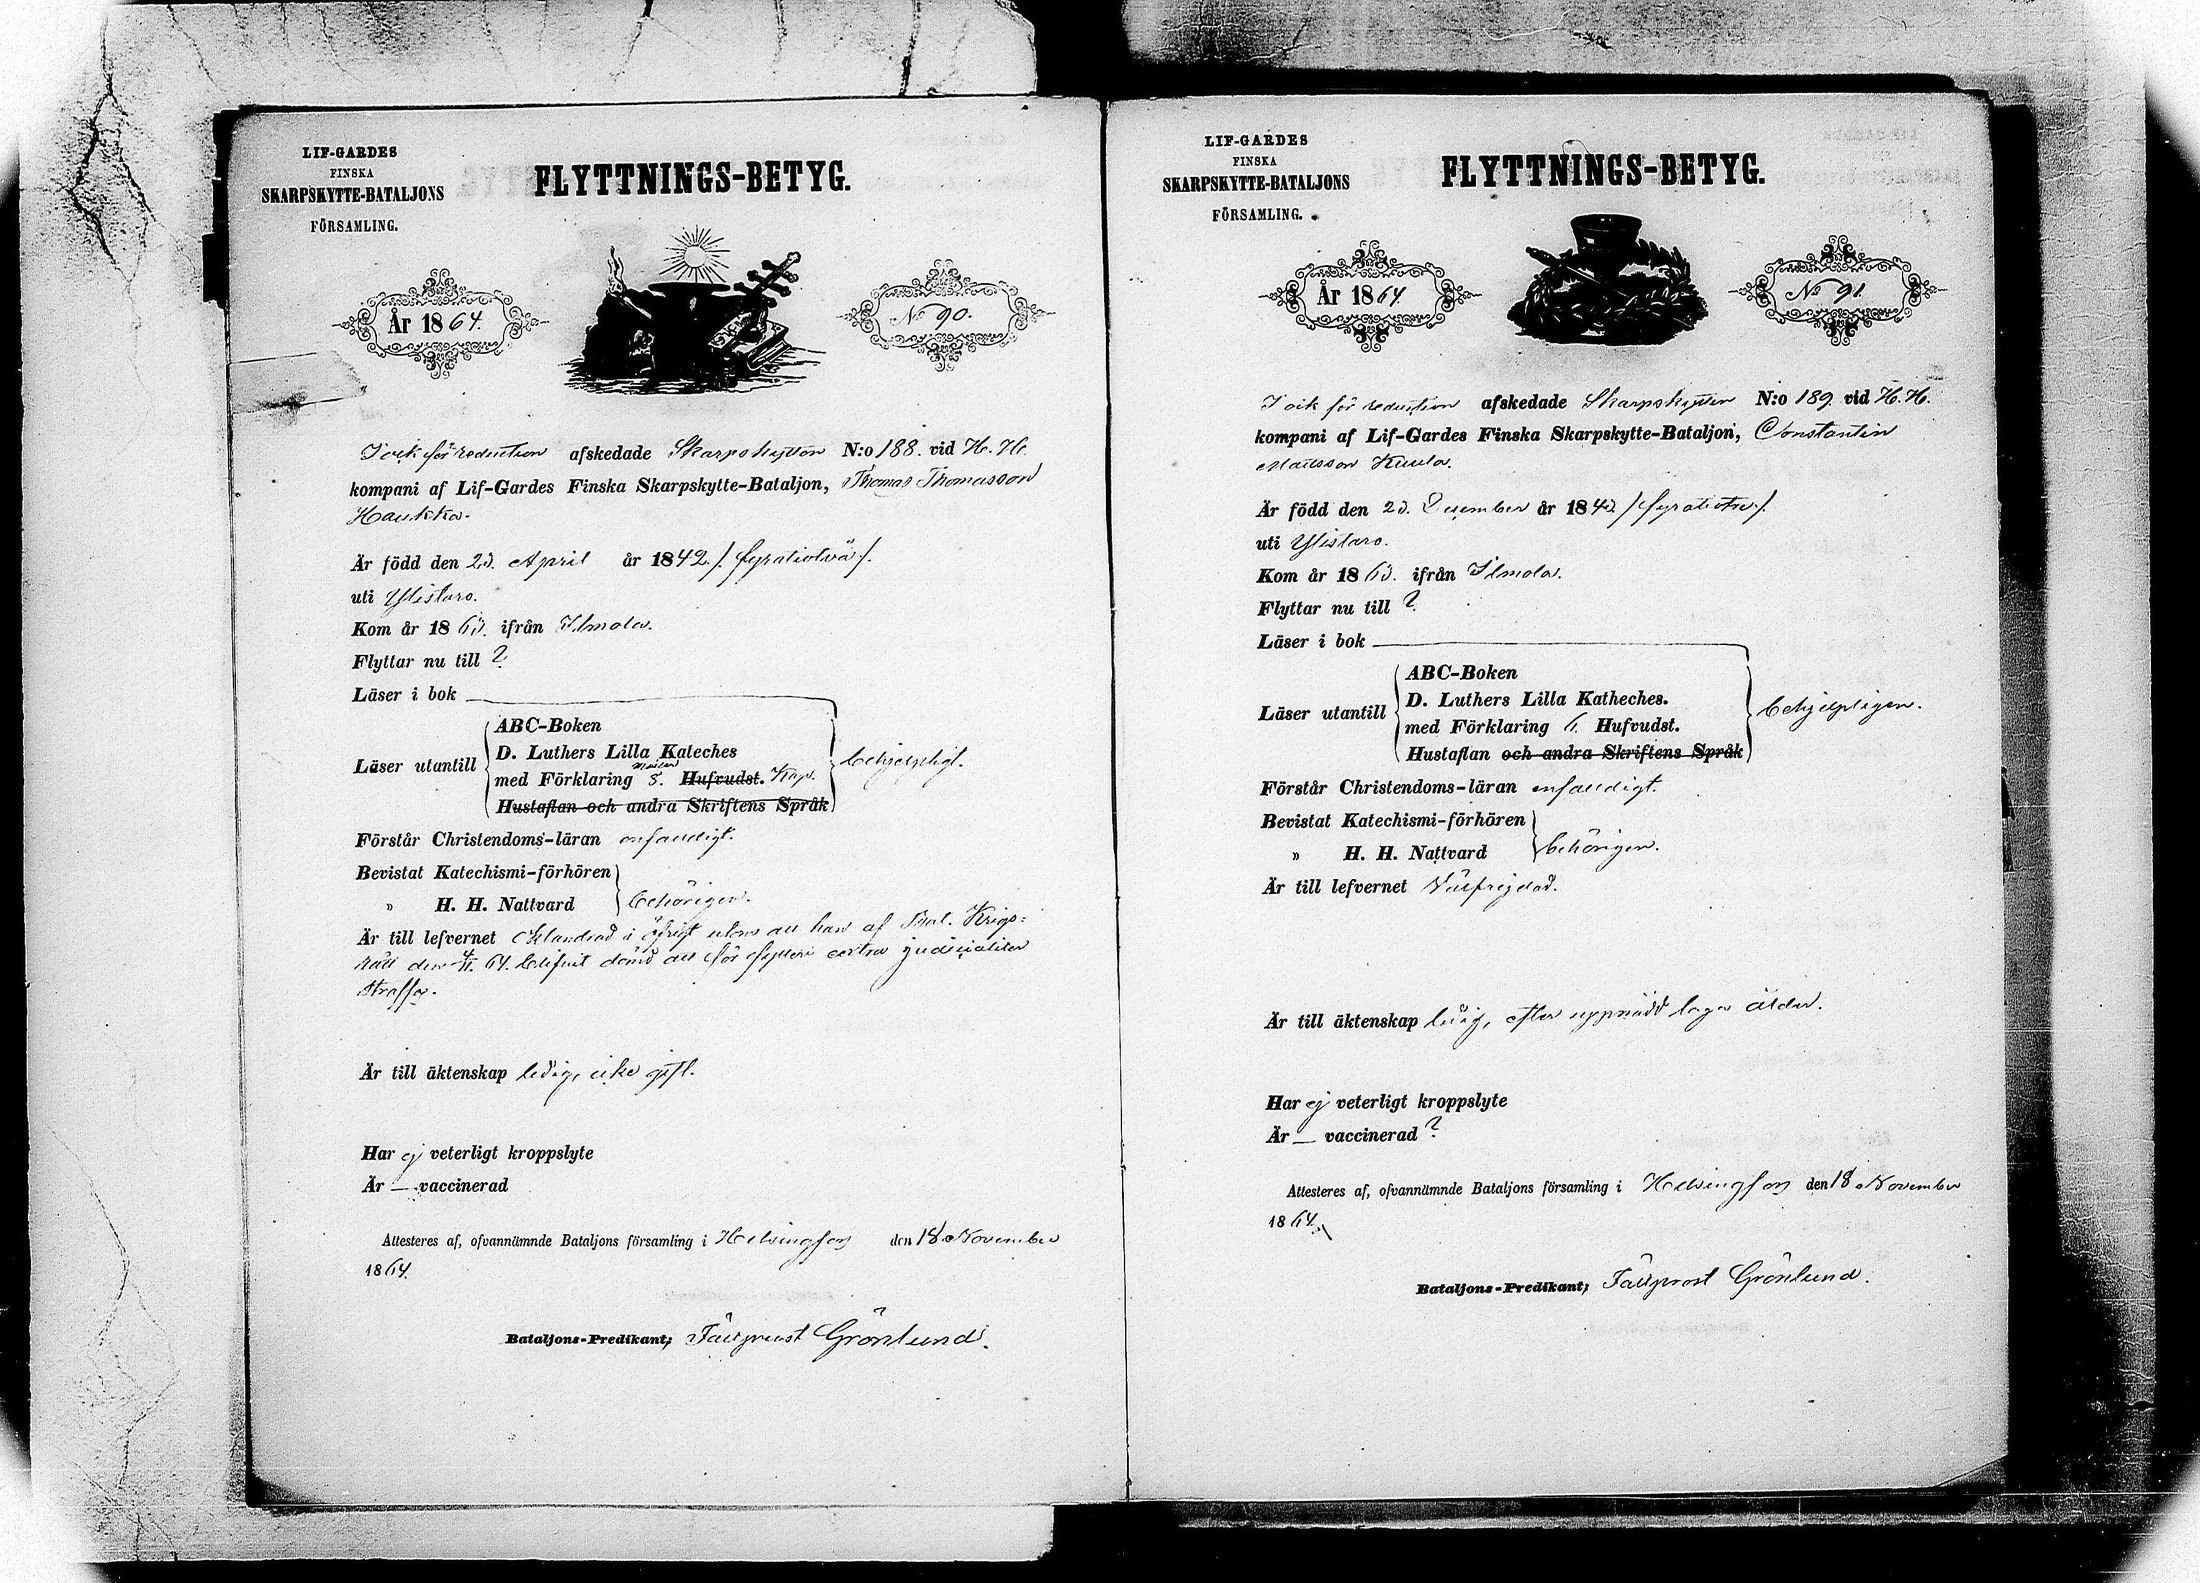 LIF-GARDES
FINSKA
SKARPSKYTTE-BATALJONS
FÖRSAMLING.
FLYTTNINGS-BETYG.
År 1864.
No 90.
för reduction afskedade Skarpskytten N:o 188. vid H. H.
kompani af Lif-Gardes Finska Skarpskytte-Bataljon, Thomas Thomasson
Haukka.
Är född den 23. April år 1842 /: fyratiotvå :/.
uti Ylistaro.
Kom år 1863. ifrån Ilmola.
Flyttar nu till ?
Läser i bok
Läser utantill
ABC-Boken
D. Luthers Lilla Kateches
med Förklaring 8. Hufvudst. Kap.
Hustaflan och andra Skriftens Språk
behjelpligt.
Förstår Christendoms-läran enfaldigt.
Bevistat Katechismi-förhören
" H. H. Nattvard
behörigen.
Är till lefvernet oklandrad i öfrigt utom att han af Bat. Krigs=
rätt den 4/11. 64. blifvit dömd att för fylleri extra judicialiter
straffas.
Är till äktenskap ledig, icke gift.
Har ej veterligt kroppslyte
Är — vaccinerad
Attesteras af, ofvannämnde Bataljons församling i Helsingfors den 18 November
1864.
Bataljons-Predikant; Fältprost Grönlund.
LIF-GARDES
FINSKA
SKARPSKYTTE-BATALJONS
FÖRSAMLING.
FLYTTNINGS-BETYG.
År 1864.
No 91.
för reduction afskedade Skarpskytten N:o 189. vid H. H.
kompani af Lif-Gardes Finska Skarpskytte-Bataljon, Constantin
Mattsson Kuula.
Är född den 23. December år 1843 /: fyratiotre /.
uti Ylistaro.
Kom år 1863. ifrån Ilmola.
Flyttar nu till ?
Läser i bok
Läser utantill
ABC-Boken
D. Luthers Lilla Katheches.
med Förklaring 6. Hufvudst.
Hustaflan och andra Skriftens Språk
behjelpligen.
Förstår Christendoms-läran enfaldigt.
Bevistat Katechismi-förhören
" H. H. Nattvard
behörigen.
Är till lefvernet Välfrejdad.
Är till äktenskap ledig, efter uppnådd laga ålder.
Har ej veterligt kroppslyte
Är — vaccinerad ?
Attesteres af, ofvannämnde Bataljons församling i Helsingfors den 18 November
1864.
Bataljons-Predikant; Fältprost Grönlund.